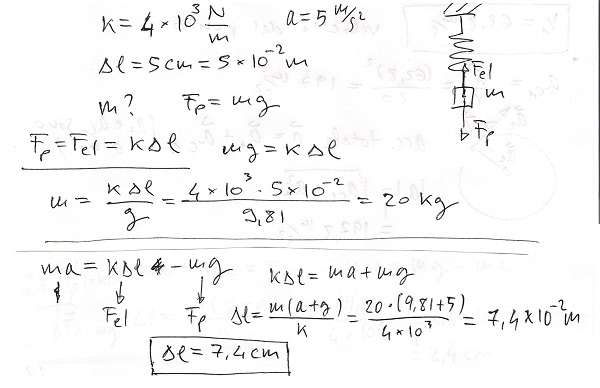 K = 4×10³ N/m   a = 5 m/s²
Δl = 5cm = 5×10⁻² m
m?   Fp = mg
Fel
m
Fp
Fp = Fel = KΔl   mg = KΔl
m = KΔl/g = 4×10³ · 5×10⁻²/9,81 = 20 kg
ma = KΔl - mg   KΔl = ma + mg
Fel   Fp   Δl = m(a+g)/K = 20·(9,81+5)/4×10³ = 7,4×10⁻² m
Δl = 7,4 cm